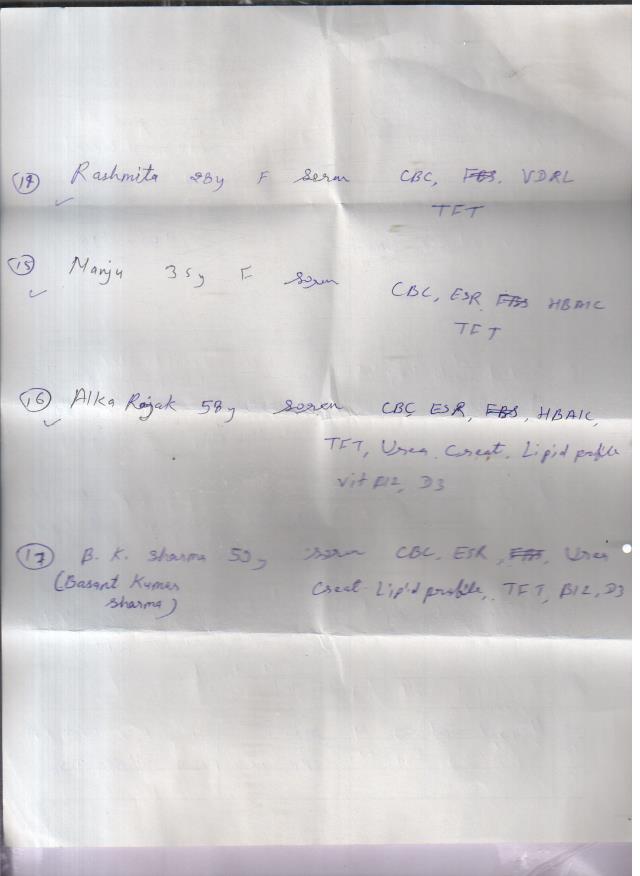 14 Rashmita 28y F Seren CBC, FBS, VDRL
TFT
15 Manju 35y F Seren CBC, ESR, FBS HBA1C
TFT
16 Alka Rajak 58y Seren CBC ESR, FBS, HBA1C,
TFT, Urea Creat, Lipid profile
vit B12, D3
17 B. K. Sharma 50y Seren CBC, ESR, FBS, Urea
(Basant Kumar Creat Lipid profile, TFT, B12, D3
Sharma)